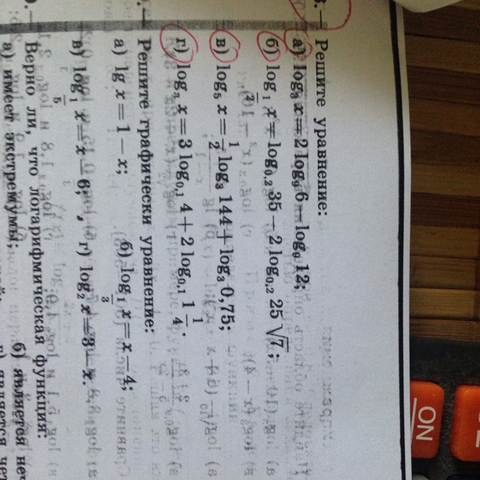 Решите уравнение:
а) log₃ x = 2 log₉ 6 − log₉ 12;
б) log₁ x = log₀,₂ 35 − 2 log₀,₂ 25√7;
в) log₅ x = 1/2 log₃ 144 + log₃ 0,75;
г) log x = 3 log₀,₁ 4 + 2 log₀,₁ 1 1/4.
Решите графически уравнение:
а) lg x = 1 − x; б) log₁/₃ x = x − 4;
в) log₁/₅ x = x − 6; г) log₂ x = 3 − x.
Верно ли, что логарифмическая функция:
а) имеет экстремумы; б) является
ON